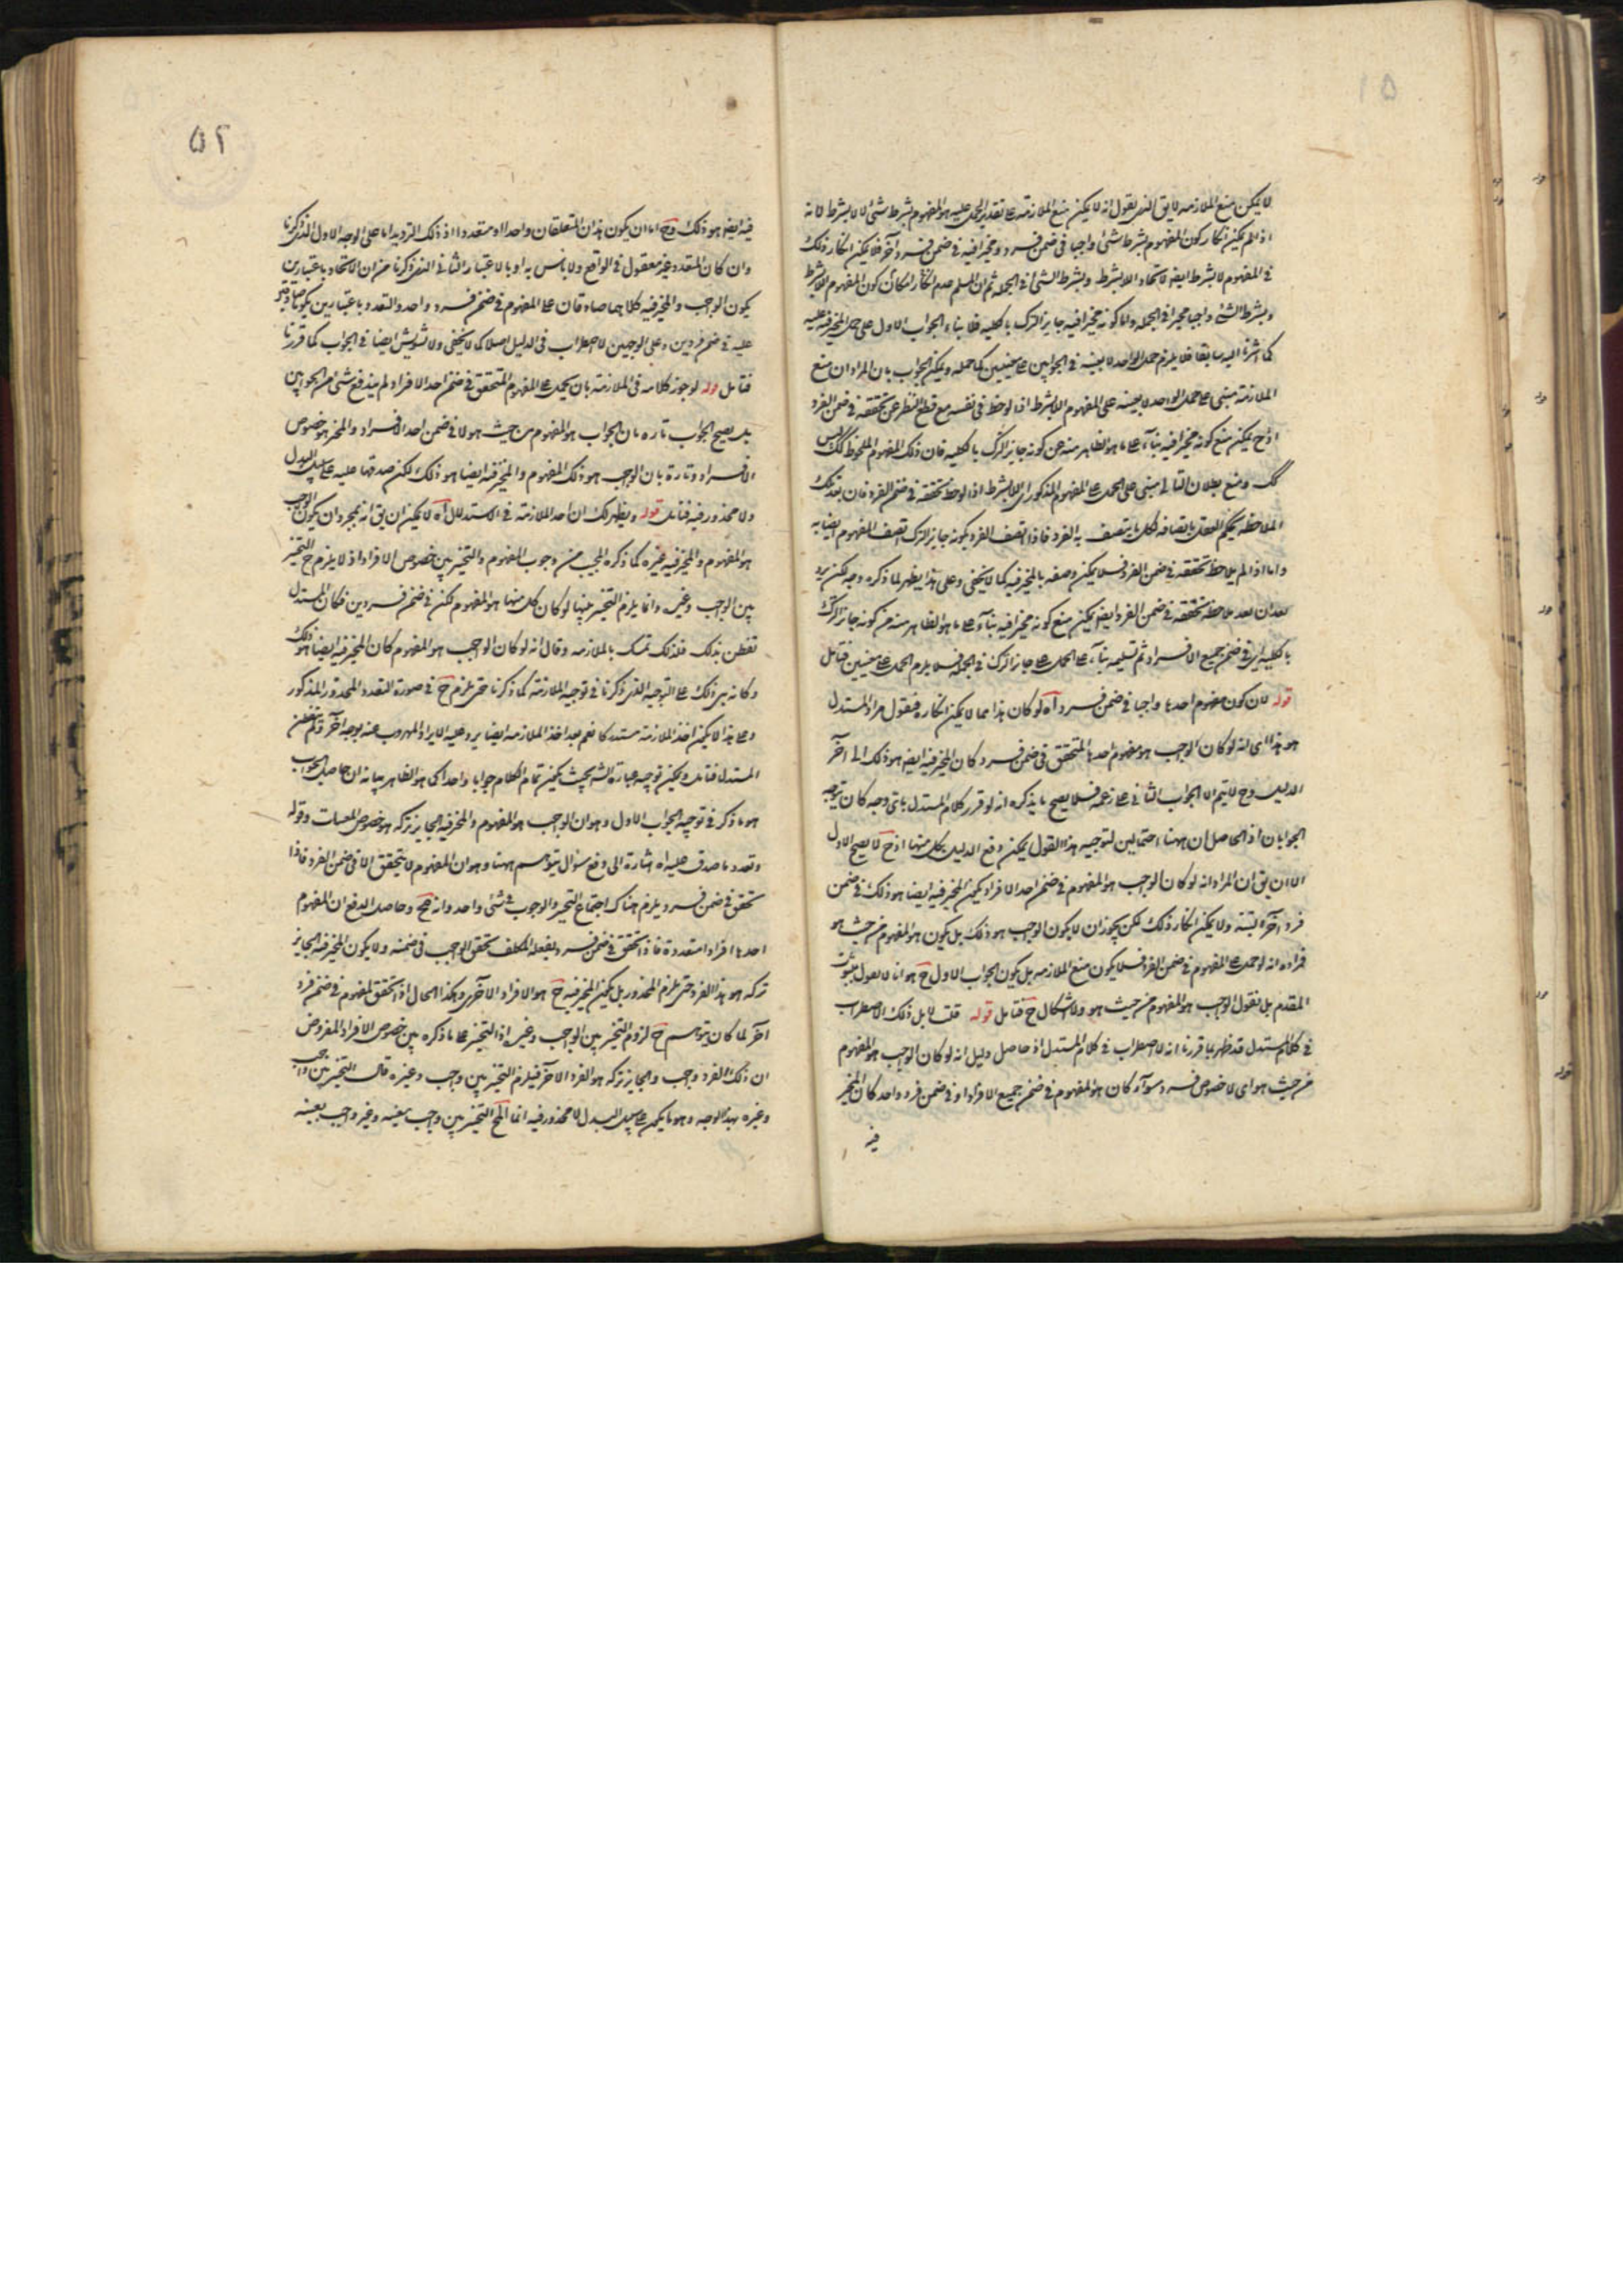 لا يمكن منع الملازمة لا يق الذى نقول انه لا يمكن منع الملازمة على تقدير الحمل عليه هو المفهوم بشرط شئ لا لا بشرط لانه
اذا لم يمكن انكار كون المفهوم بشرط شئ واجبا فى ضمن فرد ومخيرا فيه فى ضمن فرد آخر فلا يمكن انكار ذلك
فى المفهوم لا بشرط ايضا لاتحاد اللابشرط وبشرط الشئ فى الجملة ثم ان المسلم عدم امكان كون المفهوم اللابشرط
وبشرط الشئ واجبا مخيرا فى الجملة واما كونه مخيرا فيه جايز الترك بالكلية فلا بناء الجواب الاول على حمل المخير فيه عليه
كما اشرنا اليه سابقا فلا يلزم حمل الواحد لا بعينه فى الجوابين على معنيين كما حمله ويمكن الجواب بان المراد ان منع
الملازمة مبنى على حمل الواحد لا بعينه على المفهوم اللابشرط اذا لوحظ فى نفسه مع قطع النظر عن تحققه فى ضمن الفرد
اذ ح يمكن منع كونه مخيرا فيه بناء على ما هو الظاهر منه من كونه جايز الترك بالكلية فان ذلك المفهوم الملحوظ كك ليس
كك ومنع بطلان التالى مبنى على الحمل على المفهوم المذكور اى اللابشرط اذا لوحظ تحققه فى ضمن الفرد فان بعد تلك
الملاحظة يحكم العقل باتصافه بكل ما يتصف به الفرد فاذا اتصف الفرد بكونه جايز الترك اتصف المفهوم ايضا به
واما اذا لم يلاحظ تحققه فى ضمن الفرد فلا يمكن وصفه بالمخير فيه كما لا يخفى وعلى هذا يظهر لما ذكره وجه لكن يرد
بعد ان بعد ملاحظة تحققه فى ضمن الفرد ايضا يمكن منع كونه مخيرا فيه بناء على ما هو الظاهر منه من كونه جايز الترك
بالكلية اى فى ضمن جميع الافراد ثم تسليمه بناء على الحمل على جايز الترك فى الجملة فلا يلزم الحمل على معنيين فتامل
قوله لان كون مفهوم احدها واجبا فى ضمن فرد آه لو كان هذا مما لا يمكن انكاره فنقول مراد المستدل
هو هذا اى انه لو كان الواجب هو مفهوم احدها المتحقق فى ضمن فرد كان المخير فيه ايضا هو ذلك الى آخر
الدليل وح لا يتم الا الجواب الثانى على زعمه فلا يصح ما يذكره انه لو قرر كلام المستدل باى وجه كان يتوجه
الجوابان اذ الحاصل ان ههنا احتمالين لتوجيه هذا القول يمكن دفع الدليل بكل منها اذ ح لا يصح الاول
الا ان يق ان المراد انه لو كان الواجب هو المفهوم فى ضمن احد الافراد يكون المخير فيه ايضا هو ذلك فى ضمن
فرد آخر البتة ولا يمكن انكار ذلك لكن يجوز ان لا يكون الواجب هو ذلك بل يكون هو المفهوم من حيث هو
فمراده انه لو حمل على المفهوم فى ضمن الفرد فلا يكون منع الملازمة بل يكون الجواب الاول ح هو انا لا نقول بثبوت
المقدم بل نقول الواجب هو المفهوم من حيث هو ولا اشكال ح فتامل قوله قلت لا بل ذلك الاضطراب
فى كلام المستدل قد ظهر بما قررنا انه لا اضطراب فى كلام المستدل اذ حاصل دليله انه لو كان الواجب هو المفهوم
من حيث هو اى لا خصوص فرد سواء كان هو المفهوم فى ضمن جميع الافراد او فى ضمن فرد واحد كان المخير
فيه
۵۲
فيه ايضا هو ذلك وح اما ان يكون هذان المتعلقان واحدا او متعددا اذ ذلك الترديد اما على الوجه الاول الذى ذكرنا
وان كان المتعدد غير معقول فى الواقع ولا باس به او بالاعتبار الثانى الذى ذكرنا من ان الاتحاد باعتبار ان
يكون الواجب والمخير فيه كلاهما صادقان على المفهوم فى ضمن فرد واحد والتعدد باعتبار ان يكونا صادقين
عليه فى ضمن فردين وعلى الوجهين لا اضطراب فى الدليل اصلا كما لا يخفى ولا تشويش ايضا فى الجواب كما قررنا
فتامل قوله لو جوز كلامه فى الملازمة بان يحمل على المفهوم المتحقق فى ضمن احد الافراد لم يندفع شئ من الجوابين
بل يصح الجواب تارة بان الواجب هو المفهوم من حيث هو لا فى ضمن احد الافراد والمخير هو خصوص
الافراد وتارة بان الواجب هو ذلك المفهوم والمخير فيه ايضا هو ذلك لكن صدقها عليه على سبيل البدل
ولا محذور فيه فتامل قوله ويظهر لك ان اخذ الملازمة فى الاستدلال آه لا يمكن ان يق انه بمجرد ان يكون الواجب
هو المفهوم والمخير فيه غيره كما ذكره المجيب من وجوب المفهوم والتخيير بين خصوص الافراد اذ لا يلزم ح التخيير
بين الواجب وغيره وانما يلزم التخيير بينها لو كان كل منها هو المفهوم لكن فى ضمن فردين فكان المستدل
تفطن بذلك فلذلك تمسك بالملازمة وقال انه لو كان الواجب هو المفهوم كان المخير فيه ايضا هو ذلك
وكانه بنى ذلك على التوجيه الذى ذكرنا فى توجيه الملازمة كما ذكرنا حتى يلزم ح فى صورة التعدد المحذور المذكور
وعلى هذا لا يمكن اخذ الملازمة مستدركا نعم بعد اخذ الملازمة ايضا يرد عليه الايراد المهروب عنه بوجه آخر ولم يتفطن
المستدل فتامل ويمكن توجيه عبارة الش بحيث يكون تمام الكلام جوابا واحدا كما هو الظاهر ببيانه ان حاصل الجواب
هو ما ذكر فى توجيه الجواب الاول وهو ان الواجب هو المفهوم والمخير فيه الجايز تركه هو خصوص المعينات وقوله
وتعدد ما صدق عليه اه اشارة الى دفع سؤال يتوهم ههنا وهو ان المفهوم لا يتحقق الا فى ضمن الفرد فاذا
تحقق فى ضمن فرد يلزم هناك اجتماع التخيير والوجوب فى شئ واحد وانه مح وحاصل الدفع ان المفهوم
احدها افراد متعددة فاذا تحقق فى ضمن فرد بفعله المكلف تحقق الواجب فى ضمنه ولا يكون المخير فيه الجايز
تركه هو هذا الفرد حتى يلزم المحذور بل يكون المخير فيه ح هو الافراد الاخرى وهكذا الحال اذا تحقق المفهوم فى ضمن فرد
آخر لما كان يتوهم ح لزوم التخيير بين الواجب وغيره اذا التخيير على ما ذكره بين خصوص الافراد المفروض
ان ذلك الفرد واجب والجايز تركه هو الفرد الآخر فيلزم التخيير بين واجب وغيره قال التخيير بين واجب
وغيره بهذا الوجه وهو ما يكون على سبيل البدل لا محذور فيه انما المح التخيير بين واجب بعينه وغير واجب بعينه